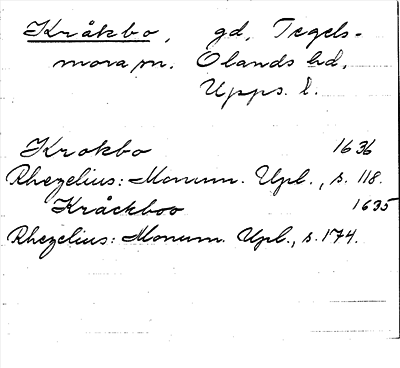 Kråkbo, gd, Tegels-
mora sn. Olands hd,
Upps. l.
Krokbo 1636
Rhezelius: Monum. Upl., s. 118.
Kråckboo 1635
Rhezelius: Monum. Upl., s. 174.